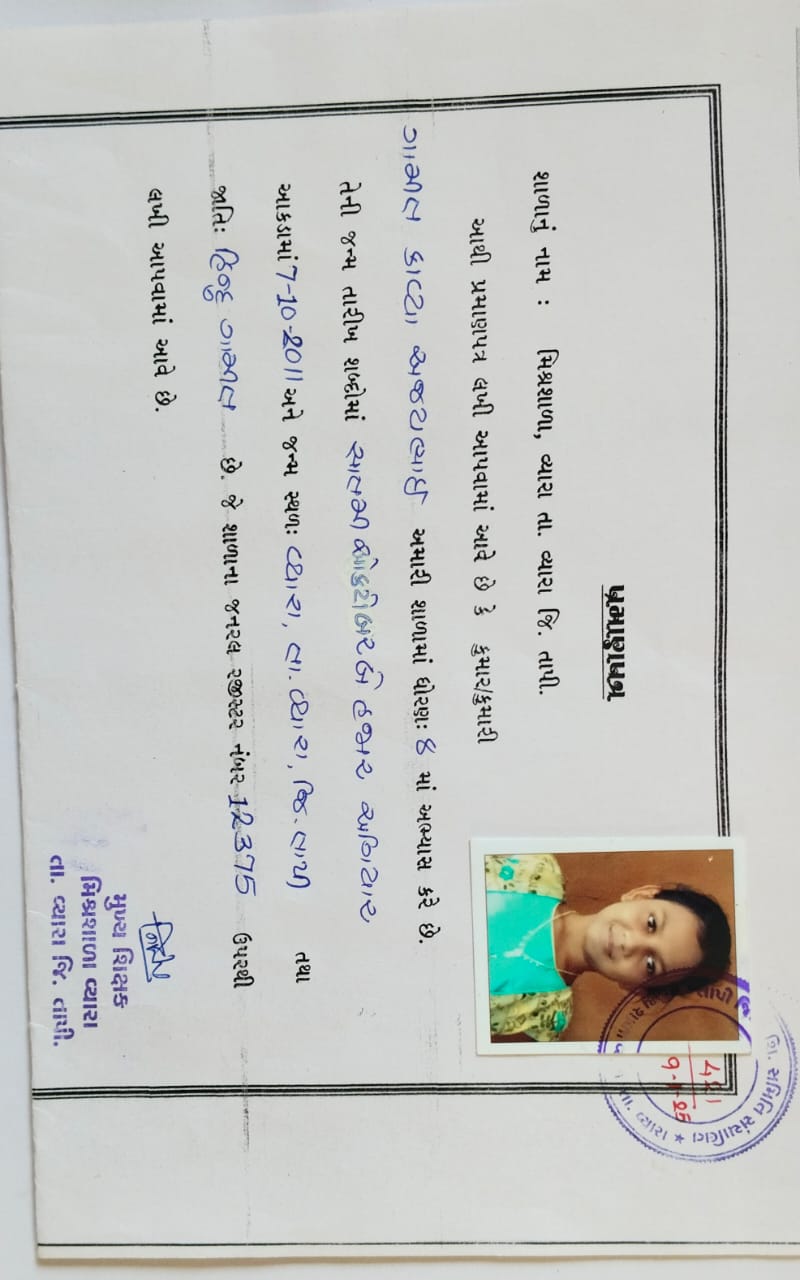 પ્રમાણપત્ર
શાળાનું નામ : મિશ્રશાળા, વ્યારા તા. વ્યારા જિ. તાપી.
આથી પ્રમાણપત્ર લખી આપવામાં આવે છે કે કુમાર/કુમારી
ગામીત કાવ્યા અજયભાઈ અમારી શાળામાં ધોરણ: 8 માં અભ્યાસ કરે છે.
તેની જન્મ તારીખ શબ્દોમાં સાતમી ઓક્ટોબર બે હજાર અગિયાર
આકડામાં 7-10-2011 અને જન્મ સ્થળ: વ્યારા, તા. વ્યારા, જિ. તાપી તથા
જાતિ: હિન્દુ ગામીત છે. જે શાળાના જનરલ રજીસ્ટર નંબર 12375 ઉપરથી
લખી આપવામાં આવે છે.
મુખ્ય શિક્ષક
મિશ્રશાળા વ્યારા
તા. વ્યારા જિ. તાપી.
શિ. સમિતિ સંચાલિત